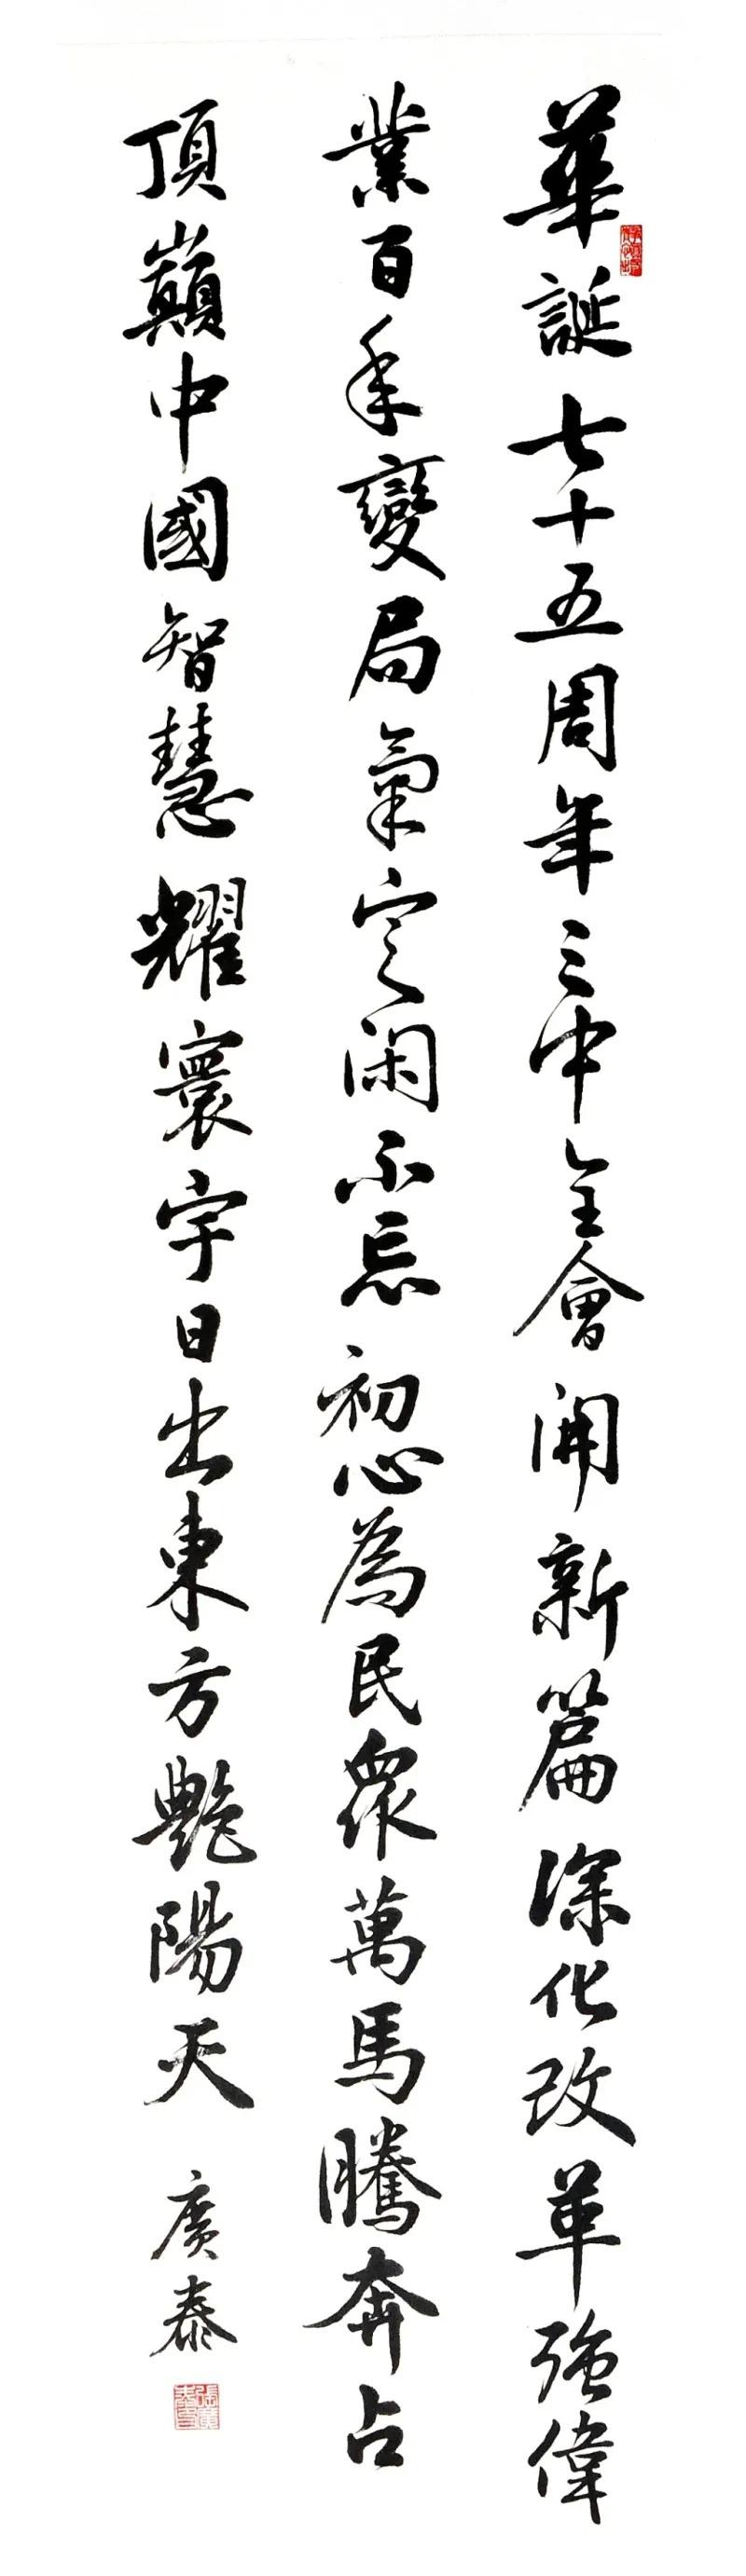 華誕七十五周年三中全會開新篇深化改革強偉
業百年變局氣定閑不忘初心為民眾萬馬騰奔占
頂巔中國智慧耀寰宇日出東方艷陽天
廣泰